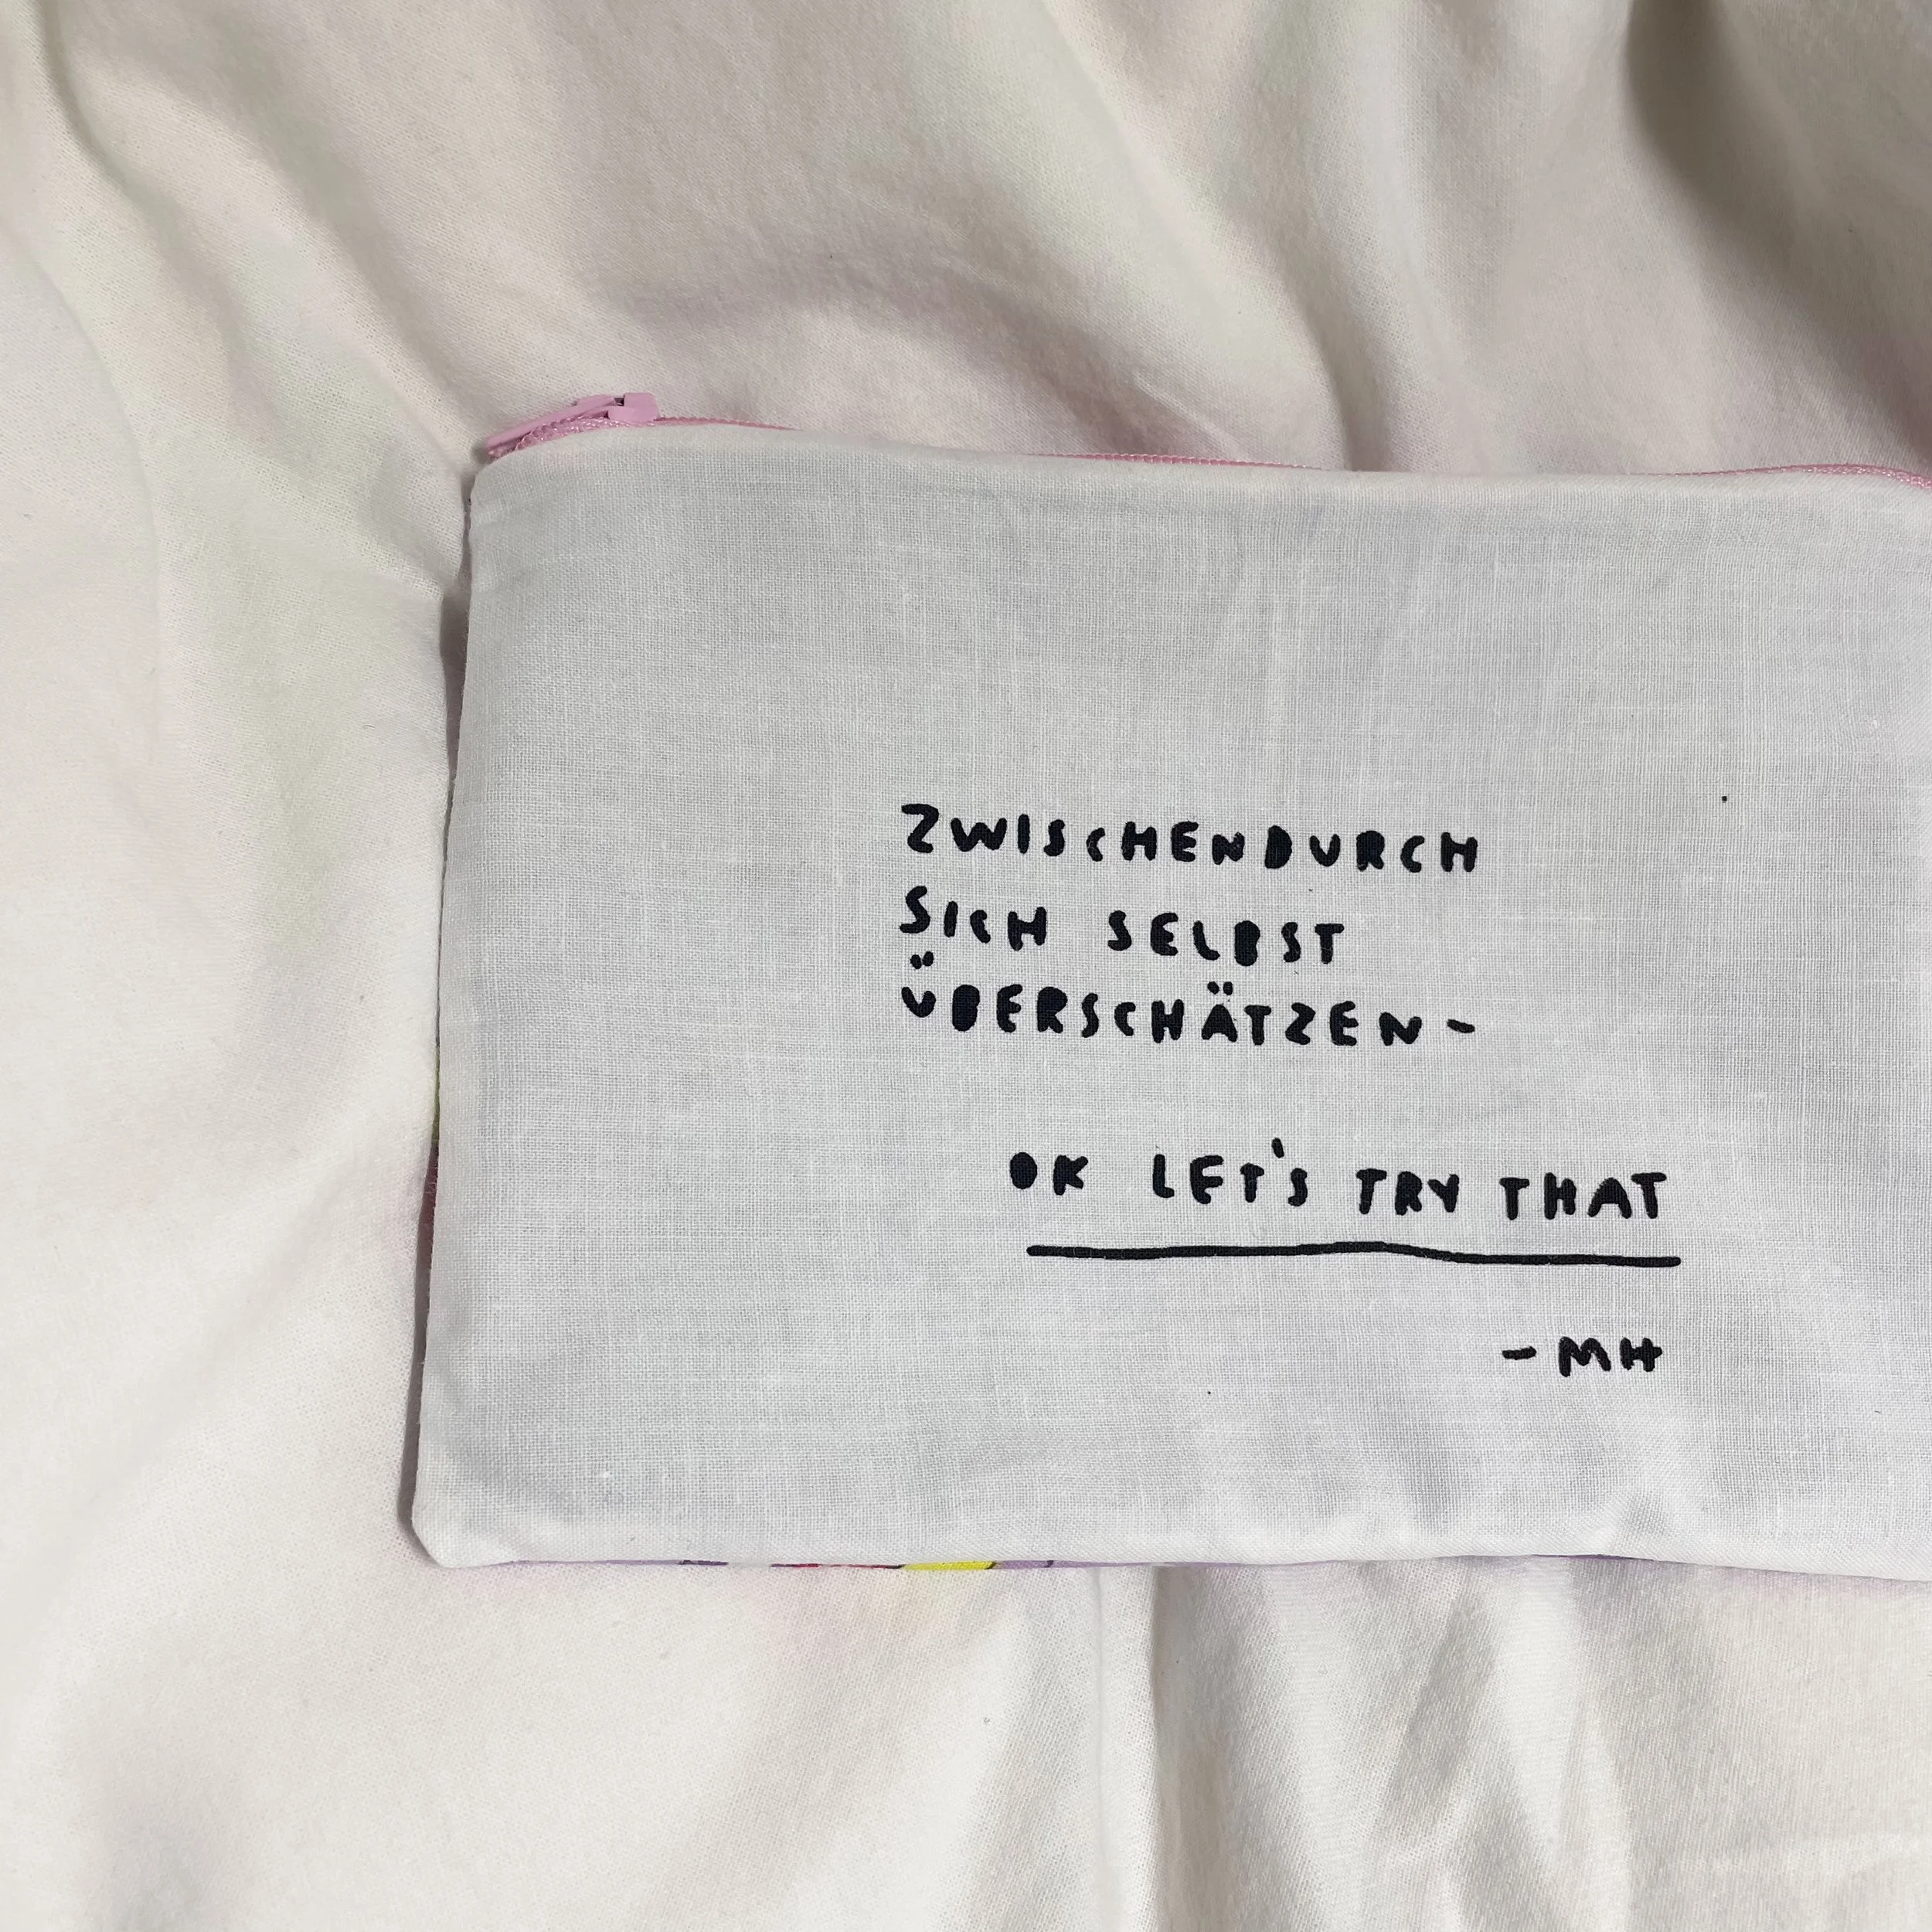 ZWISCHENDURCH
SICH SELBST
ÜBERSCHÄTZEN-
OK LET'S TRY THAT
- MH